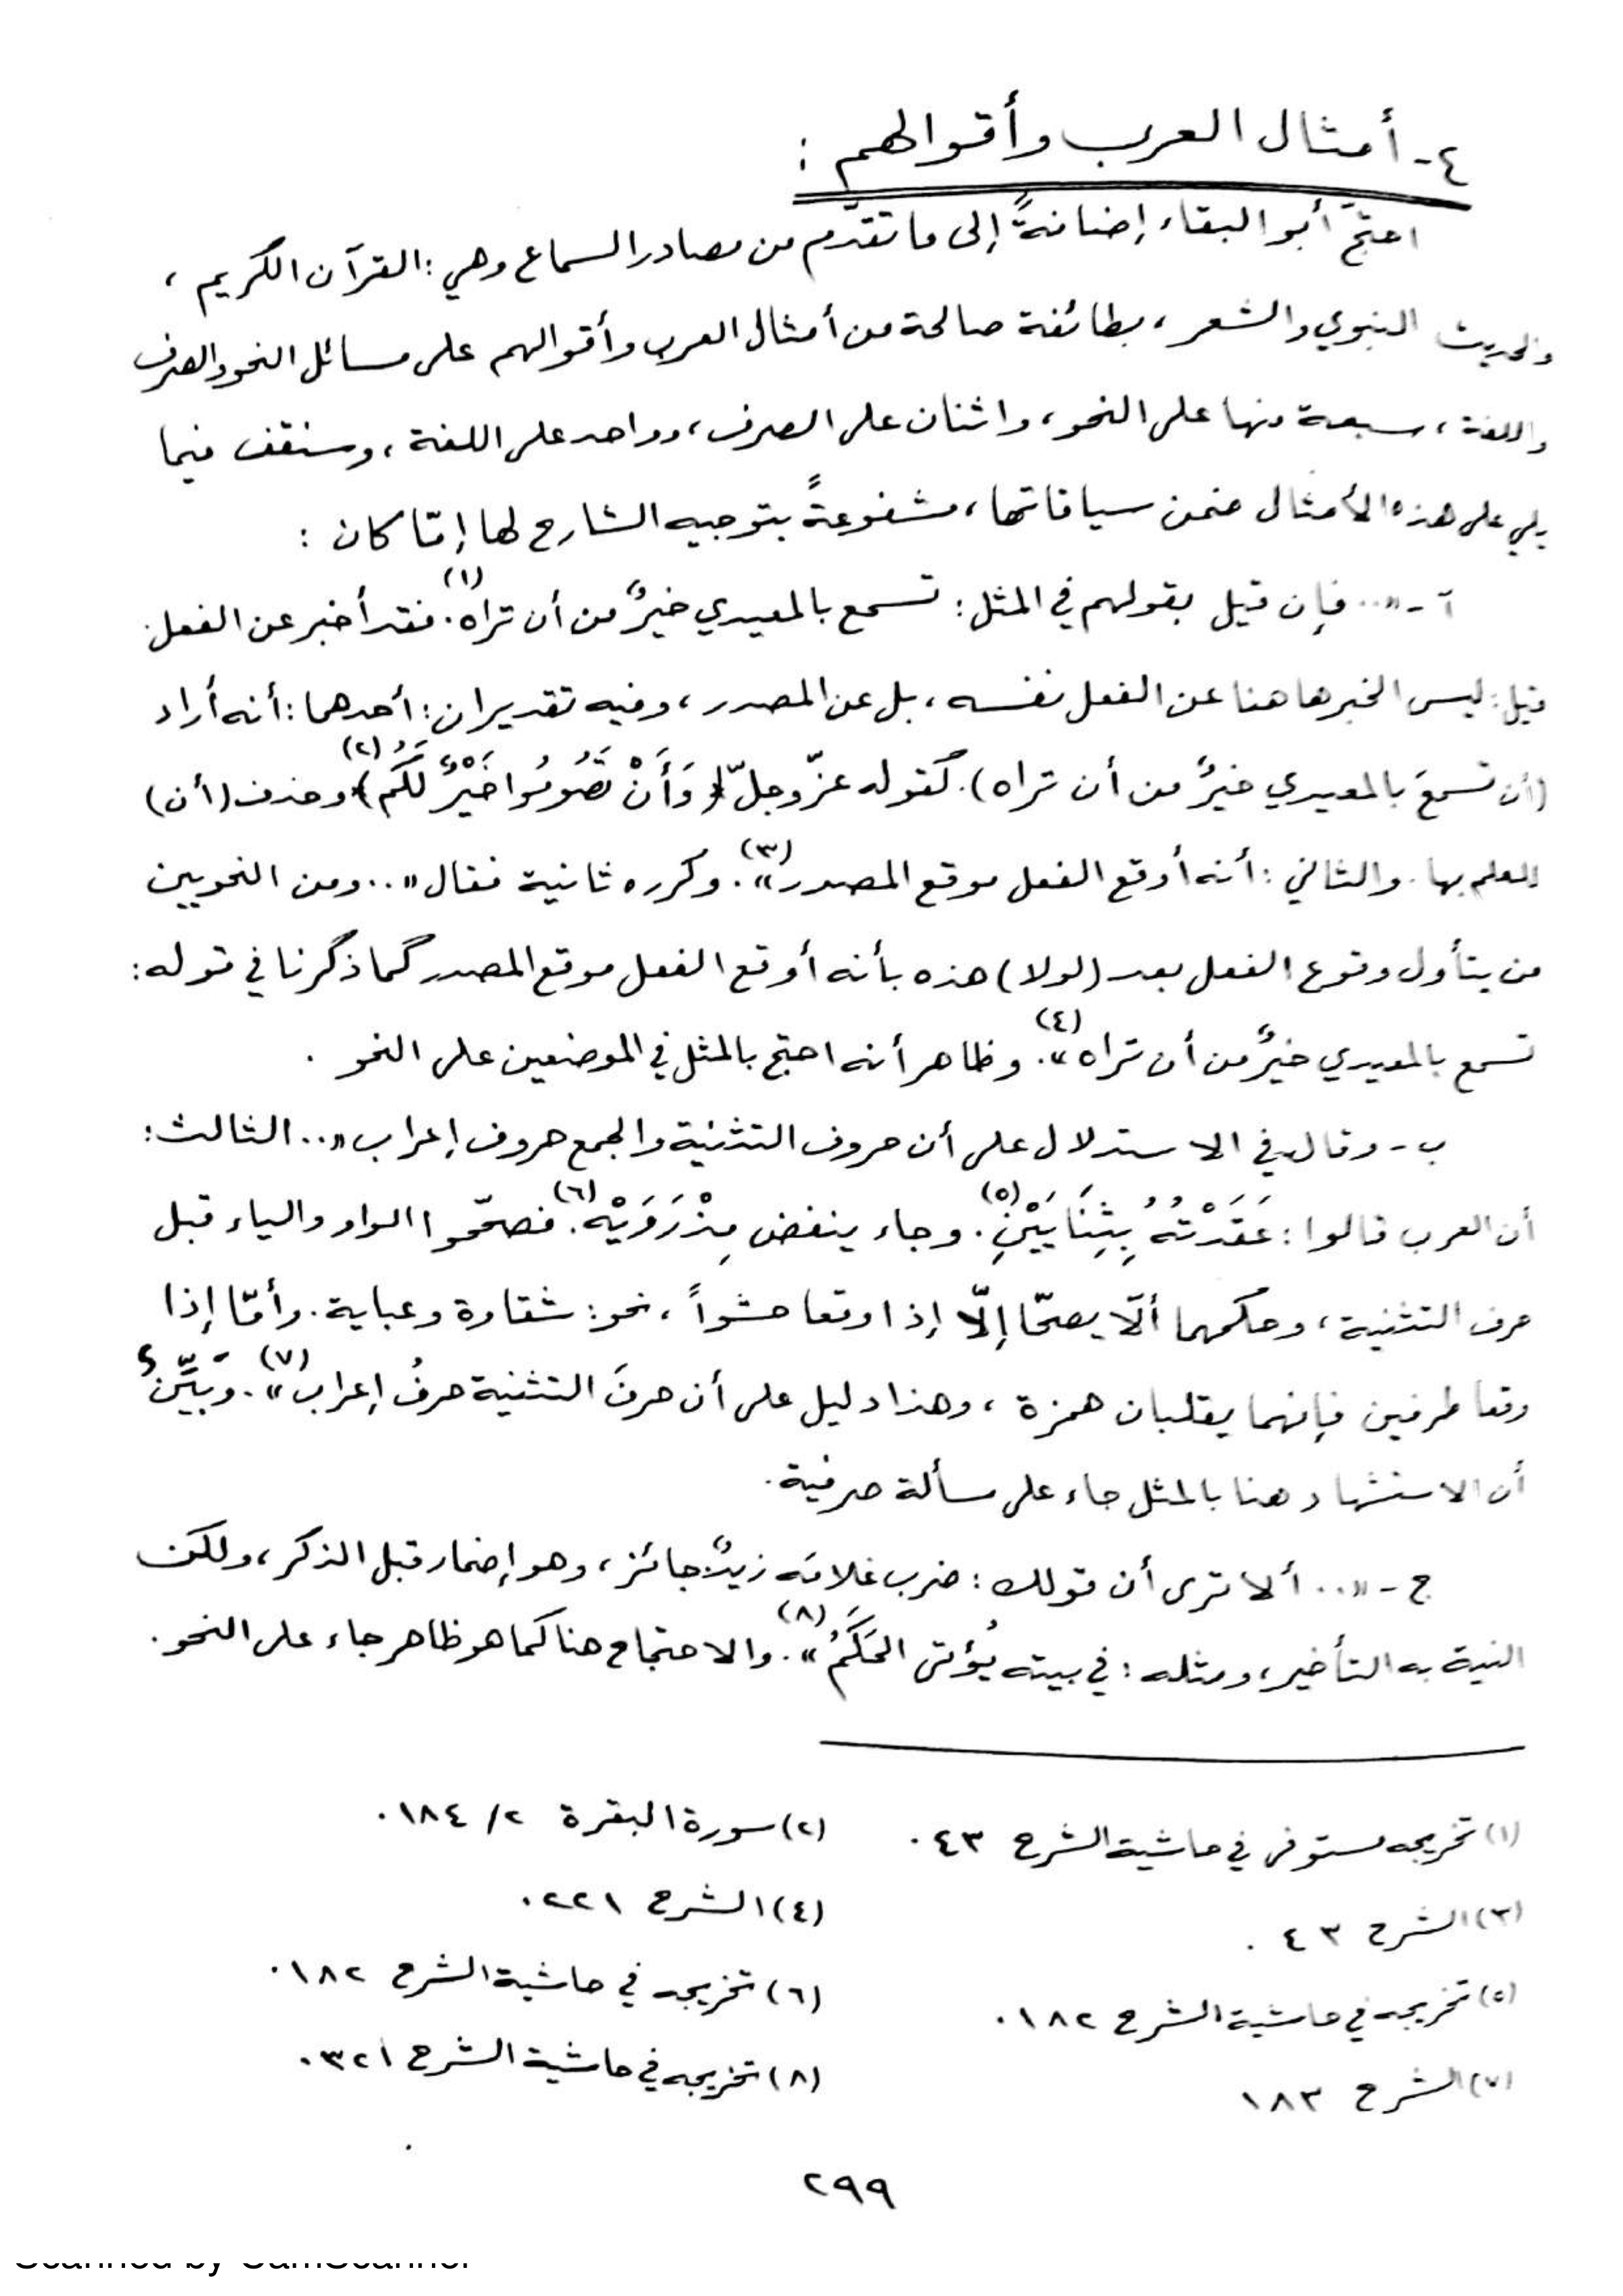 ٤- أمثال العرب وأقوالهم :
احتجَّ أبو البقاء إضافةً إلى ما تقدّم من مصادر السماع وهي : القرآن الكريم ،
والحديث النبوي والشعر ، بطائفة صالحة من أمثال العرب وأقوالهم على مسائل النحو والصرف
واللغة ، سبعة منها على النحو ، واثنان على الصرف ، وواحد على اللغة ، وسنقف فيما
يلي على هذه الأمثال ضمن سياقاتها ، مشفوعةً بتوجيه الشارح لها إمّا كان :
آ - «.. فإن قيل بقولهم في المثل : تسمع بالمعيدي خيرٌ من أن تراه (١). فقد أخبر عن الفعل .
قيل : ليس الخبر هاهنا عن الفعل نفسه ، بل عن المصدر ، وفيه تقديران : أحدهما : أنه أراد
(أن تسمعَ بالمعيدي خيرٌ من أن تراه). كقوله عزّ وجلّ ﴿وَأَنْ تَصُومُوا خَيْرٌ لَكُم﴾ (٢) وحذف (أن)
للعلم بها . والثاني : أنه أوقع الفعل موقع المصدر» (٣). وكرره ثانية فقال «.. ومن النحويين
من يتأول وقوع الفعل بعد (لولا) هذه بأنه أوقع الفعل موقع المصدر كما ذكرنا في قوله :
تسمع بالمعيدي خيرٌ من أن تراه» (٤). وظاهر أنه احتج بالمثل في الموضعين على النحو .
ب - وقال في الاستدلال على أن حروف التثنية والجمع حروف إعراب «.. الثالث :
أن العرب قالوا : عَقَدْتُهُ بِثِنَايَيْنِ (٥). وجاء ينفض مِذْرَوَيْه (٦). فصحّحوا الواو والياء قبل
حرف التثنية ، وحكمهما ألّا يصحّا إلّا إذا وقعا حشواً ، نحو : شقاوة وعباية . وأمّا إذا
وقعا طرفين فإنهما يقلبان همزة ، وهذا دليل على أن حرفَ التثنية حرفُ إعراب» (٧). وبَيِّنٌ
أن الاستشهاد هنا بالمثل جاء على مسألة صرفية .
ج - «.. ألا ترى أن قولك : ضرب غلامَه زيدٌ جائز ، وهو إضمار قبل الذكر ، ولكن
النية به التأخير ، ومثله : في بيته يُؤتى الحَكَمُ» (٨). والاحتجاج هنا كما هو ظاهر جاء على النحو .
(١) تخريجه مستوفى في حاشية الشرح ٤٣ .
(٢) سورة البقرة ٢/ ١٨٤ .
(٣) الشرح ٤٣ .
(٤) الشرح ٢٢١ .
(٥) تخريجه في حاشية الشرح ١٨٢ .
(٦) تخريجه في حاشية الشرح ١٨٢ .
(٧) الشرح ١٨٣
(٨) تخريجه في حاشية الشرح ٣٢١ .
٢٩٩
Scanned by CamScanner